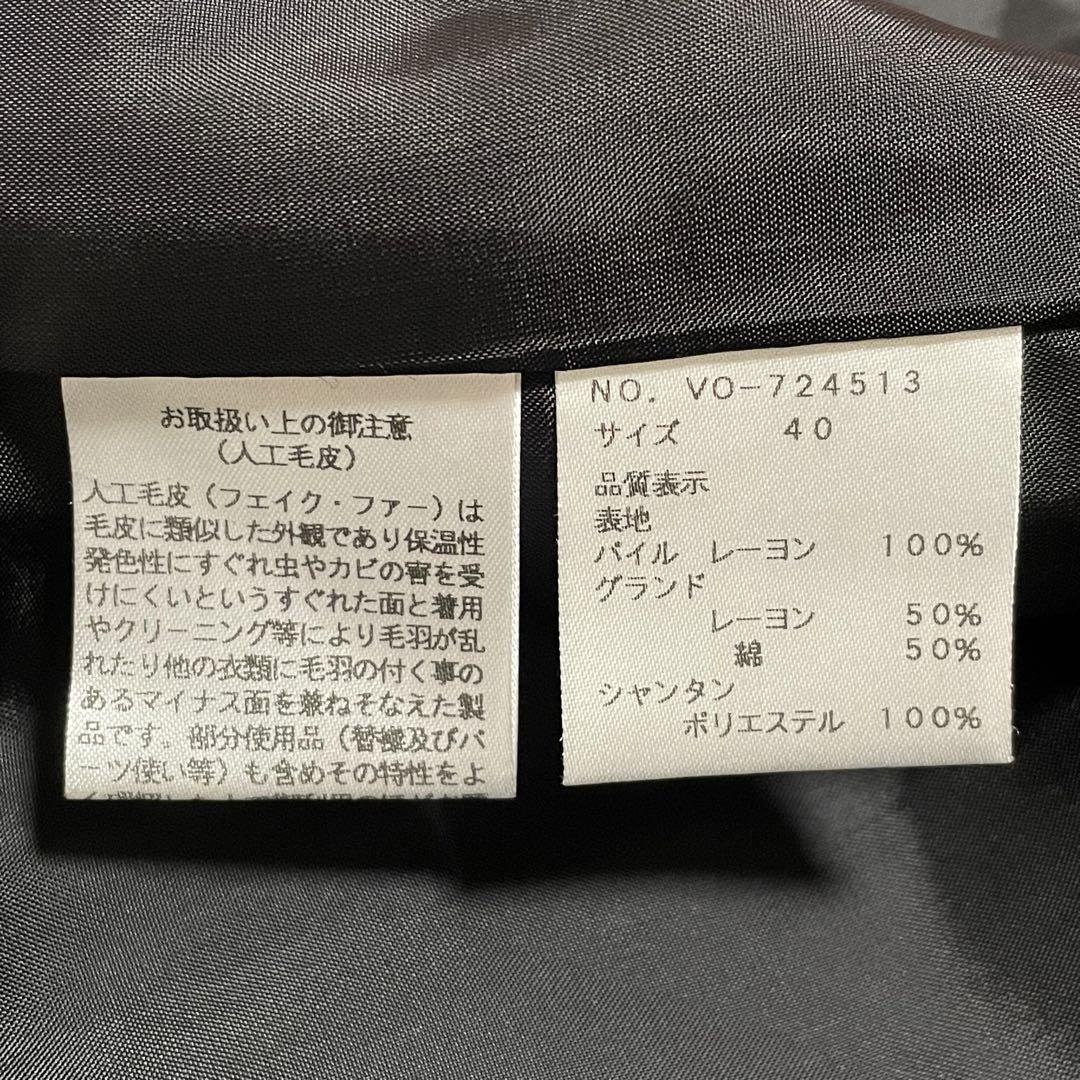 お取扱い上の御注意
（人工毛皮）
人工毛皮（フェイク・ファー）は
毛皮に類似した外観であり保温性
発色性にすぐれ虫やカビの害を受
けにくいというすぐれた面と着用
やクリーニング等により毛羽が乱
れたり他の衣類に毛羽の付く事の
あるマイナス面を兼ねそなえた製
品です。部分使用品（替襟及びパ
ーツ使い等）も含めその特性をよ
NO. VO-724513
サイズ 40
品質表示
表地
パイル レーヨン 100%
グランド
レーヨン 50%
綿 50%
シャンタン
ポリエステル 100%